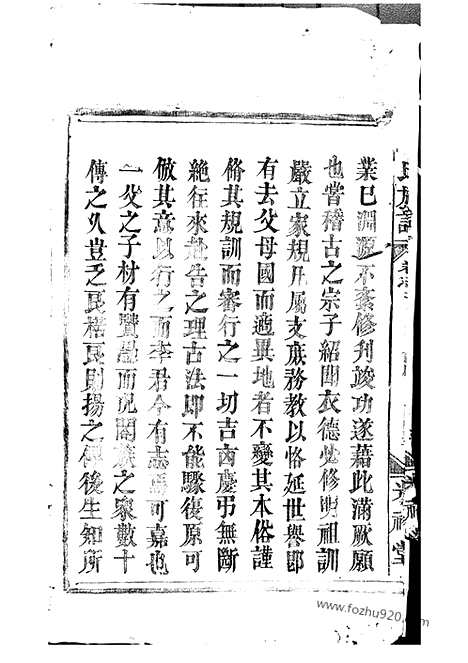 業已淵源不紊修刋竣功遂藉此滿厥願
也嘗稽古之宗子紹聞衣德必修明祖訓
嚴立家規凡屬支庶務教以恪延世譽即
有去父母國而適異地者不變其本俗謹
脩其規訓而審行之一切吉凶慶弔無斷
絶往來赴告之理古法即不能驟復原可
倣其意以行之而李君今有志焉可嘉也
一父之子材有賢愚而况閤族之衆數十
傳之久豈乏良楛良則揚之俾後生知所
氏族譜
堂
www.fozhu920.com